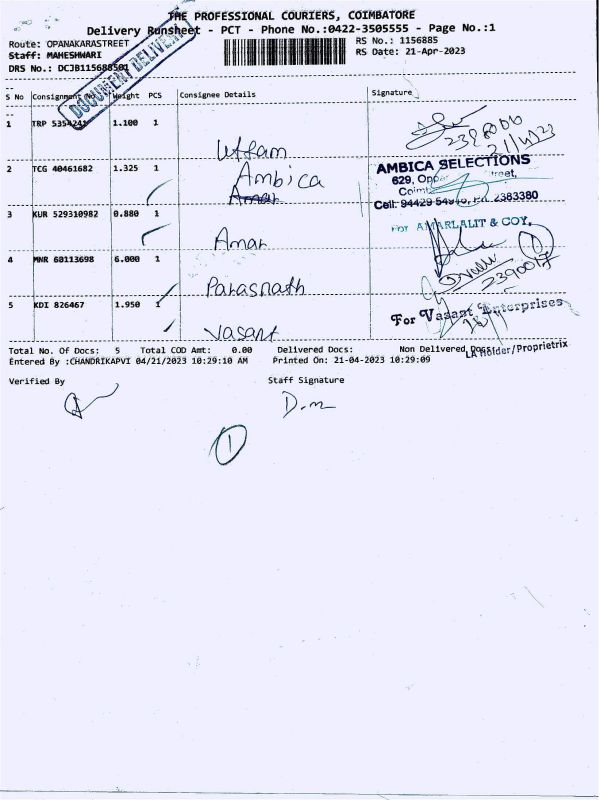 THE PROFESSIONAL COURIERS, COIMBATORE
Delivery Runsheet - PCT - Phone No.:0422-3505555 - Page No.:1
Route: OPANAKARASTREET RS No.: 1156885
Staff: MAHESHWARI RS Date: 21-Apr-2023
DRS No.: DCJB115688501
DOCUMENT DELIVERY
S No Consignment No. Weight PCS Consignee Details Signature
1 TRP 5354241 1.100 1 Uttam
2398006
21/4/23
2 TCG 40461682 1.325 1 Ambica
Amar
AMBICA SELECTIONS
629,
Cell: 94429
2383380
3 KUR 529310982 0.880 1 Amar
For AMARLALIT & COY,
4 MNR 60113698 6.000 1 Parasnath
2390017
5 KDI 826467 1.950 1 Vasant
For Vasant Enterprises
LR Holder/Proprietrix
Total No. Of Docs: 5 Total COD Amt: 0.00 Delivered Docs: Non Delivered Docs:
Entered By :CHANDRIKAPVI 04/21/2023 10:29:10 AM Printed On: 21-04-2023 10:29:09
Verified By Staff Signature
1